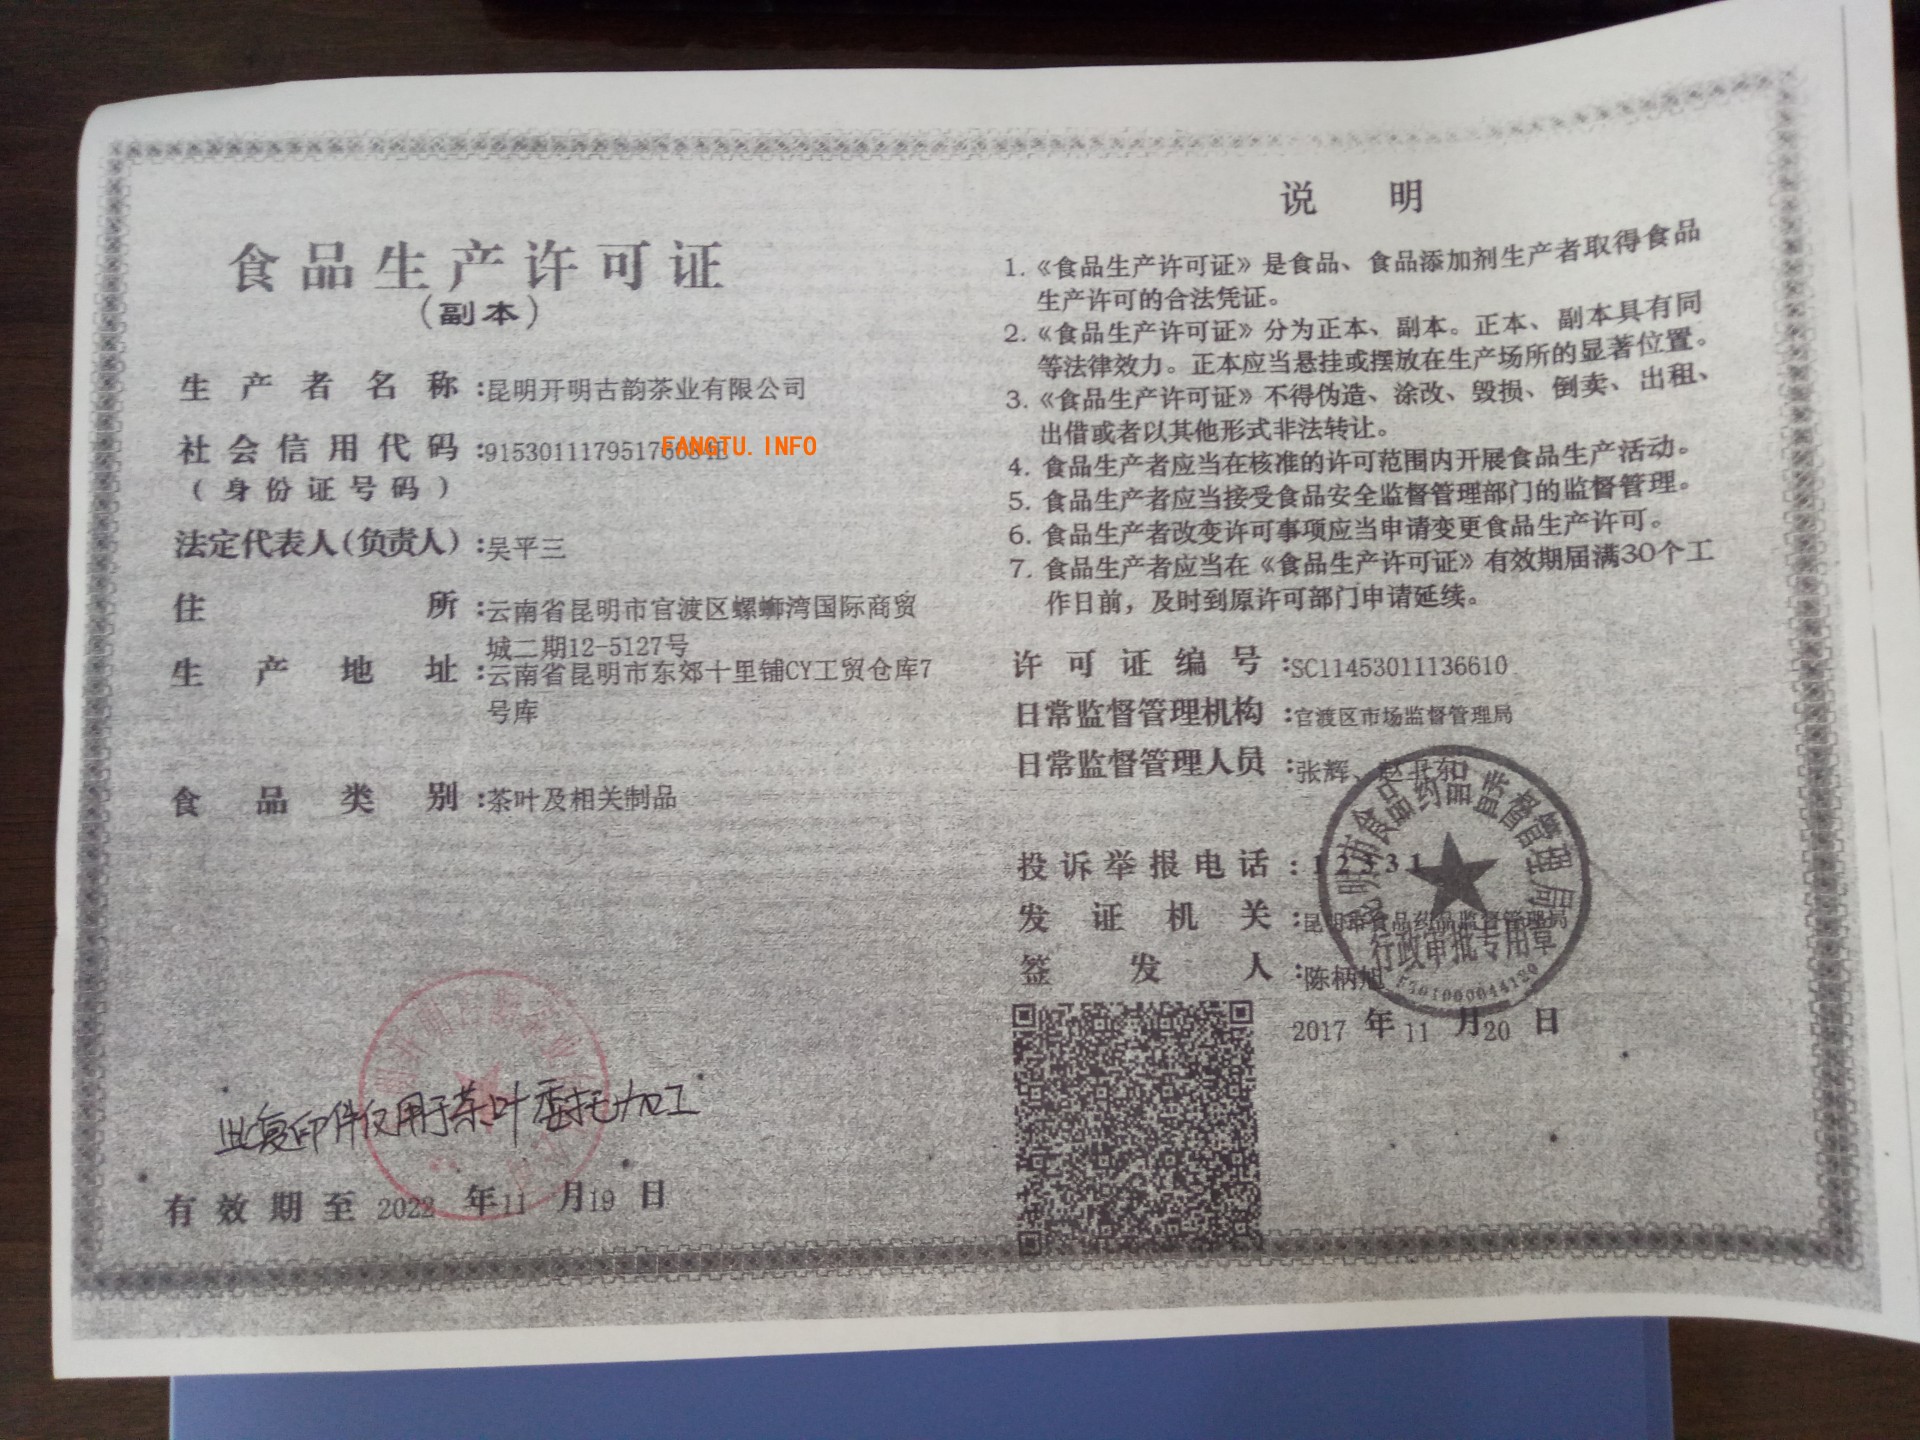 食品生产许可证
(副本)
生产者名称:昆明开明古韵茶业有限公司
社会信用代码:91530111795176084E
FANGTU.INFO
(身份证号码)
法定代表人(负责人):吴平三
住所:云南省昆明市官渡区螺蛳湾国际商贸
城二期12-5127号
生产地址:云南省昆明市东郊十里铺CY工贸仓库7
号库
食品类别:茶叶及相关制品
此复印件仅用于茶叶委托加工
有效期至 2022 年11 月19 日
说 明
1.《食品生产许可证》是食品、食品添加剂生产者取得食品
生产许可的合法凭证。
2.《食品生产许可证》分为正本、副本。正本、副本具有同
等法律效力。正本应当悬挂或摆放在生产场所的显著位置。
3.《食品生产许可证》不得伪造、涂改、毁损、倒卖、出租、
出借或者以其他形式非法转让。
4. 食品生产者应当在核准的许可范围内开展食品生产活动。
5. 食品生产者应当接受食品安全监督管理部门的监督管理。
6. 食品生产者改变许可事项应当申请变更食品生产许可。
7. 食品生产者应当在《食品生产许可证》有效期届满30个工
作日前，及时到原许可部门申请延续。
许可证编号:SC11453011136610
日常监督管理机构:官渡区市场监督管理局
日常监督管理人员:张辉、赵北东
投诉举报电话:12331
发证机关:昆明市食品药品监督管理局
签发人:陈柄旭
2017 年 11 月 20 日
昆明市食品药品监督管理局
行政审批专用章